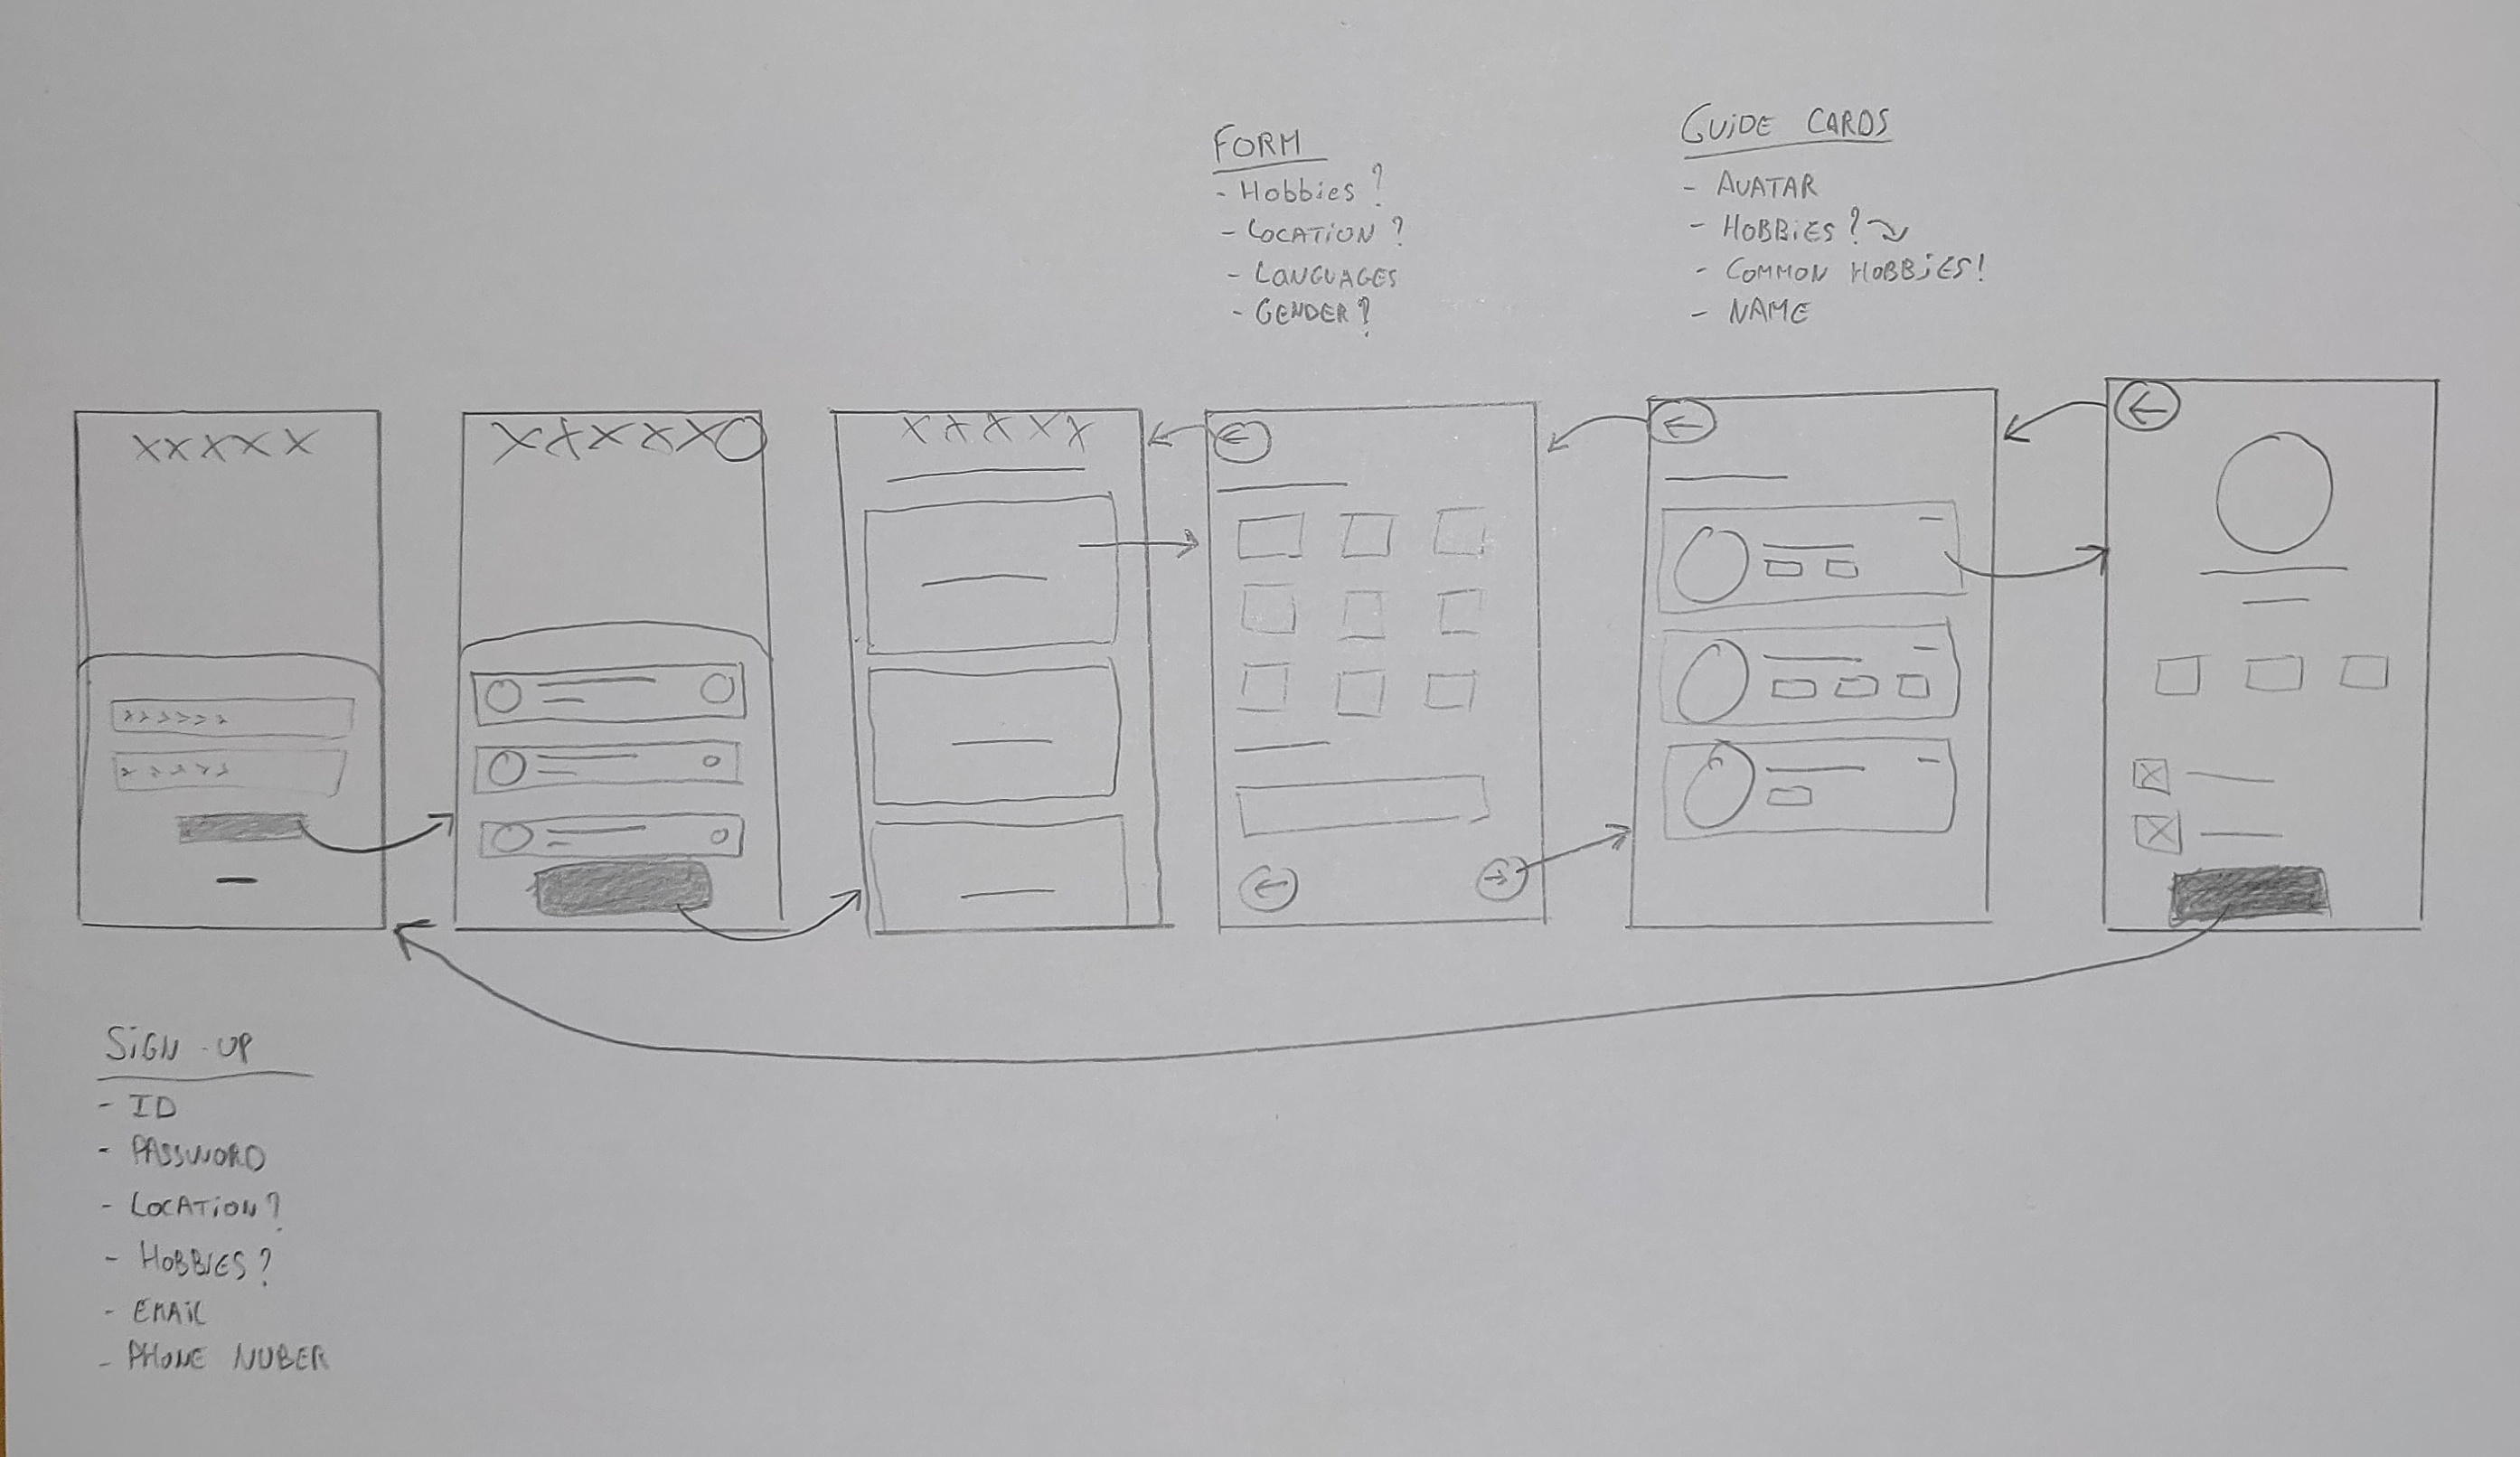 FORM
- Hobbies?
- LOCATION?
- LANGUAGES
- GENDER?
GUIDE CARDS
- AVATAR
- HOBBIES?
- COMMON HOBBIES!
- NAME
XXXXX
XXXXX
XXXXX
SIGN-UP
- ID
- PASSWORD
- LOCATION?
- HOBBIES?
- EMAIL
- PHONE NUBER